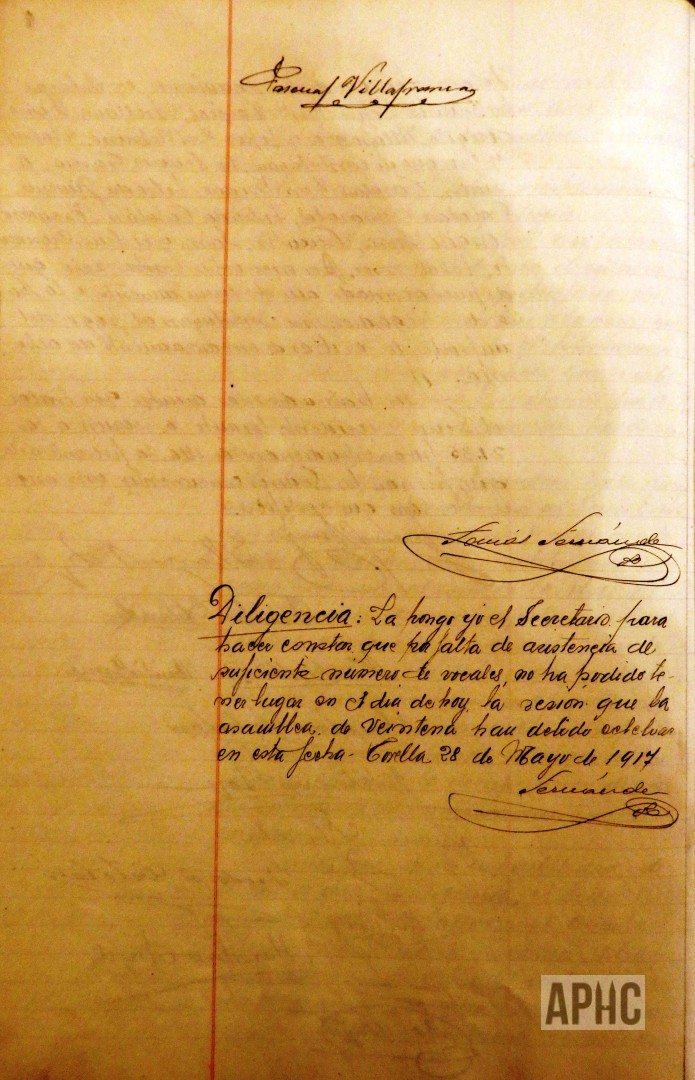 Pascual Villafranca
Tomás Fernández
Diligencia: La pongo yo el Secretario para
hacer constar que por falta de asistencia de
suficiente número de vocales, no ha podido te-
ner lugar en el dia de hoy, la sesion, que la
asamblea de Veintena han debido celebrar
en esta fecha - Corella 28 de Mayo de 1917
Fernández
APHC